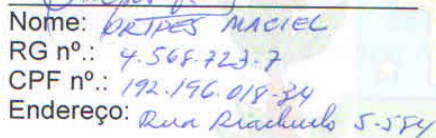 Nome: MACIEL
RG nº.: 4.568.723-7
CPF nº.: 192.196.018-34
Endereço: Rua Riachuelo 5-584